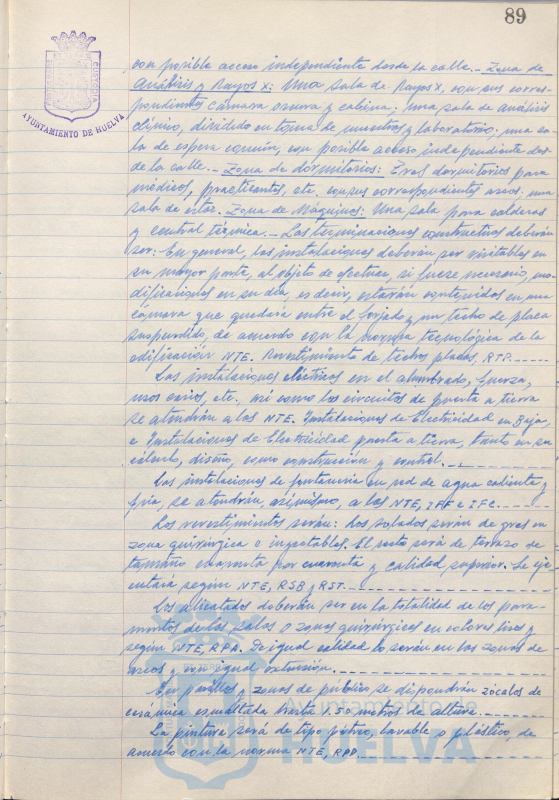 89
AYUNTAMIENTO DE HUELVA
con posible acceso independiente desde la calle.- Zona de
Análisis y Rayos X: Una sala de Rayos X, con sus corres-
pondientes cámara oscura y cabina. Una sala de análisis
clínico, dividido en toma de muestras y laboratorio. una sa-
la de espera común, con posible acceso independiente des-
de la calle.- Zona de dormitorios: Tres dormitorios para
médicos, practicantes, etc. con sus correspondientes aseos. una
sala de estar. Zona de Máquinas: Una sala para calderas
y central térmica.- Las terminaciones constructivas deberán
ser: En general, las instalaciones deberán ser visitables en
su mayor parte, al objeto de efectuar, si fuese necesario, mo-
dificaciones en su día, es decir, estarán contenidos en una
cámara que quedaría entre el forjado y un techo de placa
suspendido, de acuerdo con la norma tecnológica de la
edificación NTE. Revestimiento de techos placas, RTP.
Las instalaciones eléctricas en el alumbrado, fuerza,
usos varios, etc., así como los circuitos de puesta a tierra
se atendrán a las NTE. Instalaciones de Electricidad en Baja,
e Instalaciones de Electricidad puesta a tierra, tanto en su
cálculo, diseño, como construcción y control.
Las instalaciones de fontanería en red de agua caliente y
fría, se atendrán asimismo, a las NTE, IFF e IFC.
Los revestimientos serán: Los solados serán de gres en
zona quirúrgica e inyectables. El resto será de terrazo de
tamaño cuarenta por cuarenta y calidad superior. Se eje-
cutará según NTE, RSB y RST.
Los alicatados deberán ser en la totalidad de los para-
mentos de las salas o zonas quirúrgicas en colores lisos y
según NTE, RPA. De igual calidad lo serán en las zonas de
aseos y con igual extensión.
En pasillos y zonas de público se dispondrán zócalos de
cerámica esmaltada hasta 1.50 metros de altura.
La pintura será de tipo pétreo, lavable o plástico, de
acuerdo con la norma NTE, RPP.
Ayuntamiento de
HUELVA